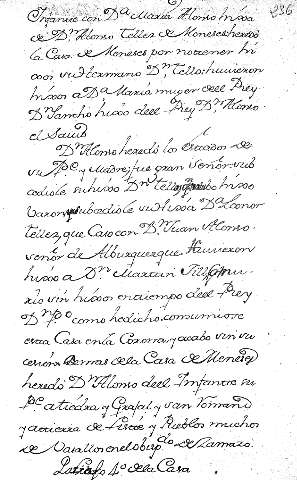 236
Infante con Dª Maria Alonso hixa
de Dⁿ Alonso Tellez de Meneses heredó
la Casa de Meneses por no tener hi
xos su Hermano Dⁿ Tello huuieron
hixos a Dª Maria muger del Rey
Dⁿ Sancho hixo del Rey Dⁿ Alonso
el Sauio
Dⁿ Alonso heredó los estados de
su Pᵉ y Madre fue gran señor sub
cediole su hixo Dⁿ Tello hixo
Varon subcediole su hixa Dª Leonor
tellez que Caso con Dⁿ Juan Alonso
señor de Alburquerque Huuieron
hixo a Dⁿ Martin Gil mu
rio sin hixos en tiempo del Rey
Dⁿ Pº como he dicho consumiose
esta Casa en la Corona y acabo sin su
cesion demas de la Casa de Meneses
heredó Dⁿ Alonso del Infante su
Pᵉ a tiedra y Grajal y san Roman
y Pueblos muchos
de Vasallos en el obispᵈᵒ de Zamora
4º de la Casa